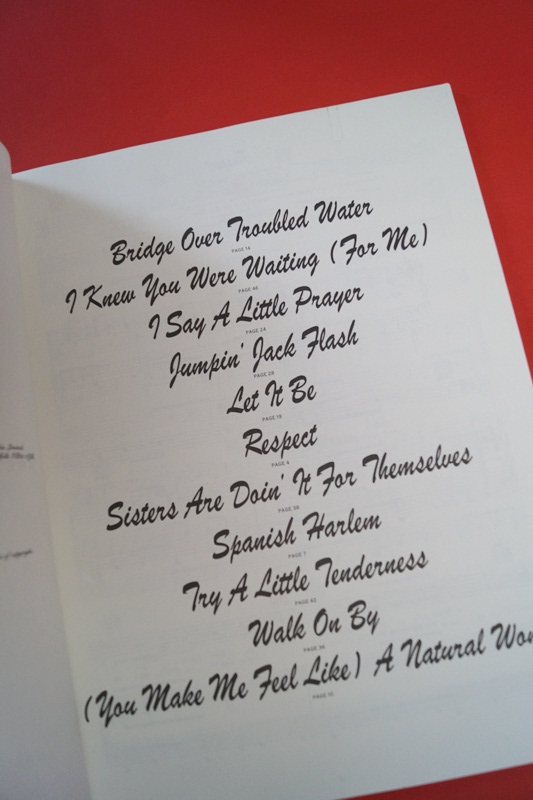 Bridge Over Troubled Water
PAGE 14
I Knew You Were Waiting (For Me)
PAGE 46
I Say A Little Prayer
PAGE 24
Jumpin' Jack Flash
PAGE 28
Let It Be
PAGE 19
Respect
PAGE 4
Sisters Are Doin' It For Themselves
Spanish Harlem
PAGE 7
Try A Little Tenderness
Walk On By
(You Make Me Feel Like) A Natural
PAGE 10